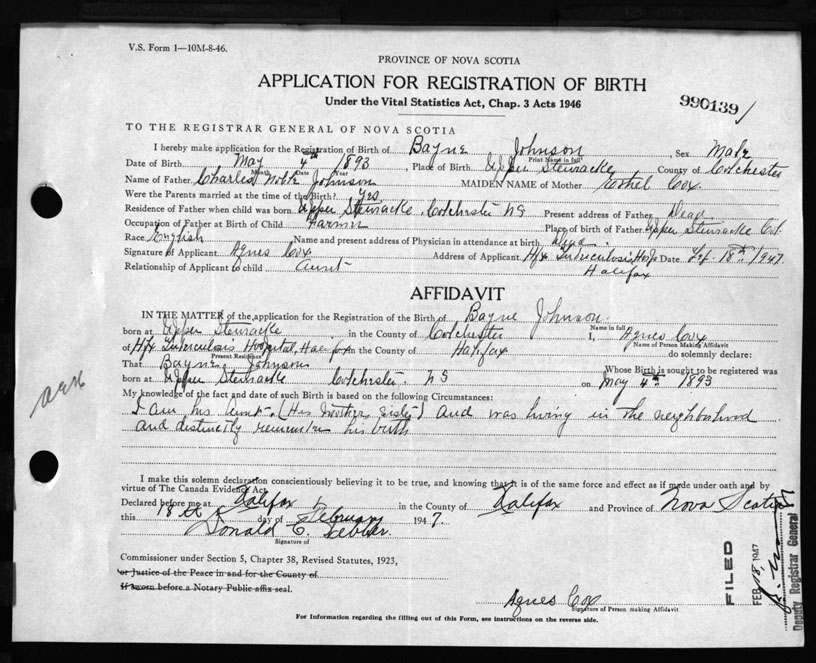 V.S. Form 1—10M-8-46.
PROVINCE OF NOVA SCOTIA
APPLICATION FOR REGISTRATION OF BIRTH
Under the Vital Statistics Act, Chap. 3 Acts 1946
990139
TO THE REGISTRAR GENERAL OF NOVA SCOTIA
I hereby make application for the Registration of Birth of Bayne Johnson, Sex Male
Print Name in full
Date of Birth May 4th 1893, Place of Birth Upper Stewiacke County of Colchester
Month Date Year
Name of Father Charles Johnson MAIDEN NAME of Mother Ethel Cox
Were the Parents married at time of the Birth? Yes
Residence of Father when child was born Upper Stewiacke Colchester NS Present address of Father Dead
Occupation of Father at Birth of Child Farmer Place of birth of Father Upper Stewiacke Col.
Race English Name and present address of Physician in attendance at birth Dead.
Signature of Applicant Agnes Cox Address of Applicant Hfx Tuberculosis Hosp Date Feb. 18th 1947
Relationship of Applicant to child aunt Halifax
AFFIDAVIT
IN THE MATTER of the application for the Registration of the Birth of Bayne Johnson
Name in full
born at Upper Stewiacke in the County of Colchester I, Agnes Cox
Name of Person Making Affidavit
of Hfx Tuberculosis Hospital, Halifax in the County of Halifax do solemnly declare:
Present Residence
That Bayne Johnson Whose Birth is sought to be registered was
born at Upper Stewiacke Colchester. NS on May 4th 1893
My knowledge of the fact and date of such Birth is Based on the following Circumstances:
I am his Aunt. (His mothers sister) and was living in the neighborhood
and distinctly remember his birth
I make this solemn declaration conscientiously believing it to be true, and knowing that it is of the same force and effect as if made under oath and by
virtue of The Canada Evidence Act.
Declared before me at Halifax in the County of Halifax and Province of Nova Scotia
this 18th day of February 1947.
Donald C.
Signature of
Commissioner under Section 5, Chapter 38, Revised Statutes, 1923,
or Justice of the Peace in and for the County of
If sworn before a Notary Public affix seal.
Agnes Cox
Signature of Person making Affidavit
For Information regarding the filling out of this Form, see instructions on the reverse side.
FILED
FEB 18, 1947
Deputy Registrar General